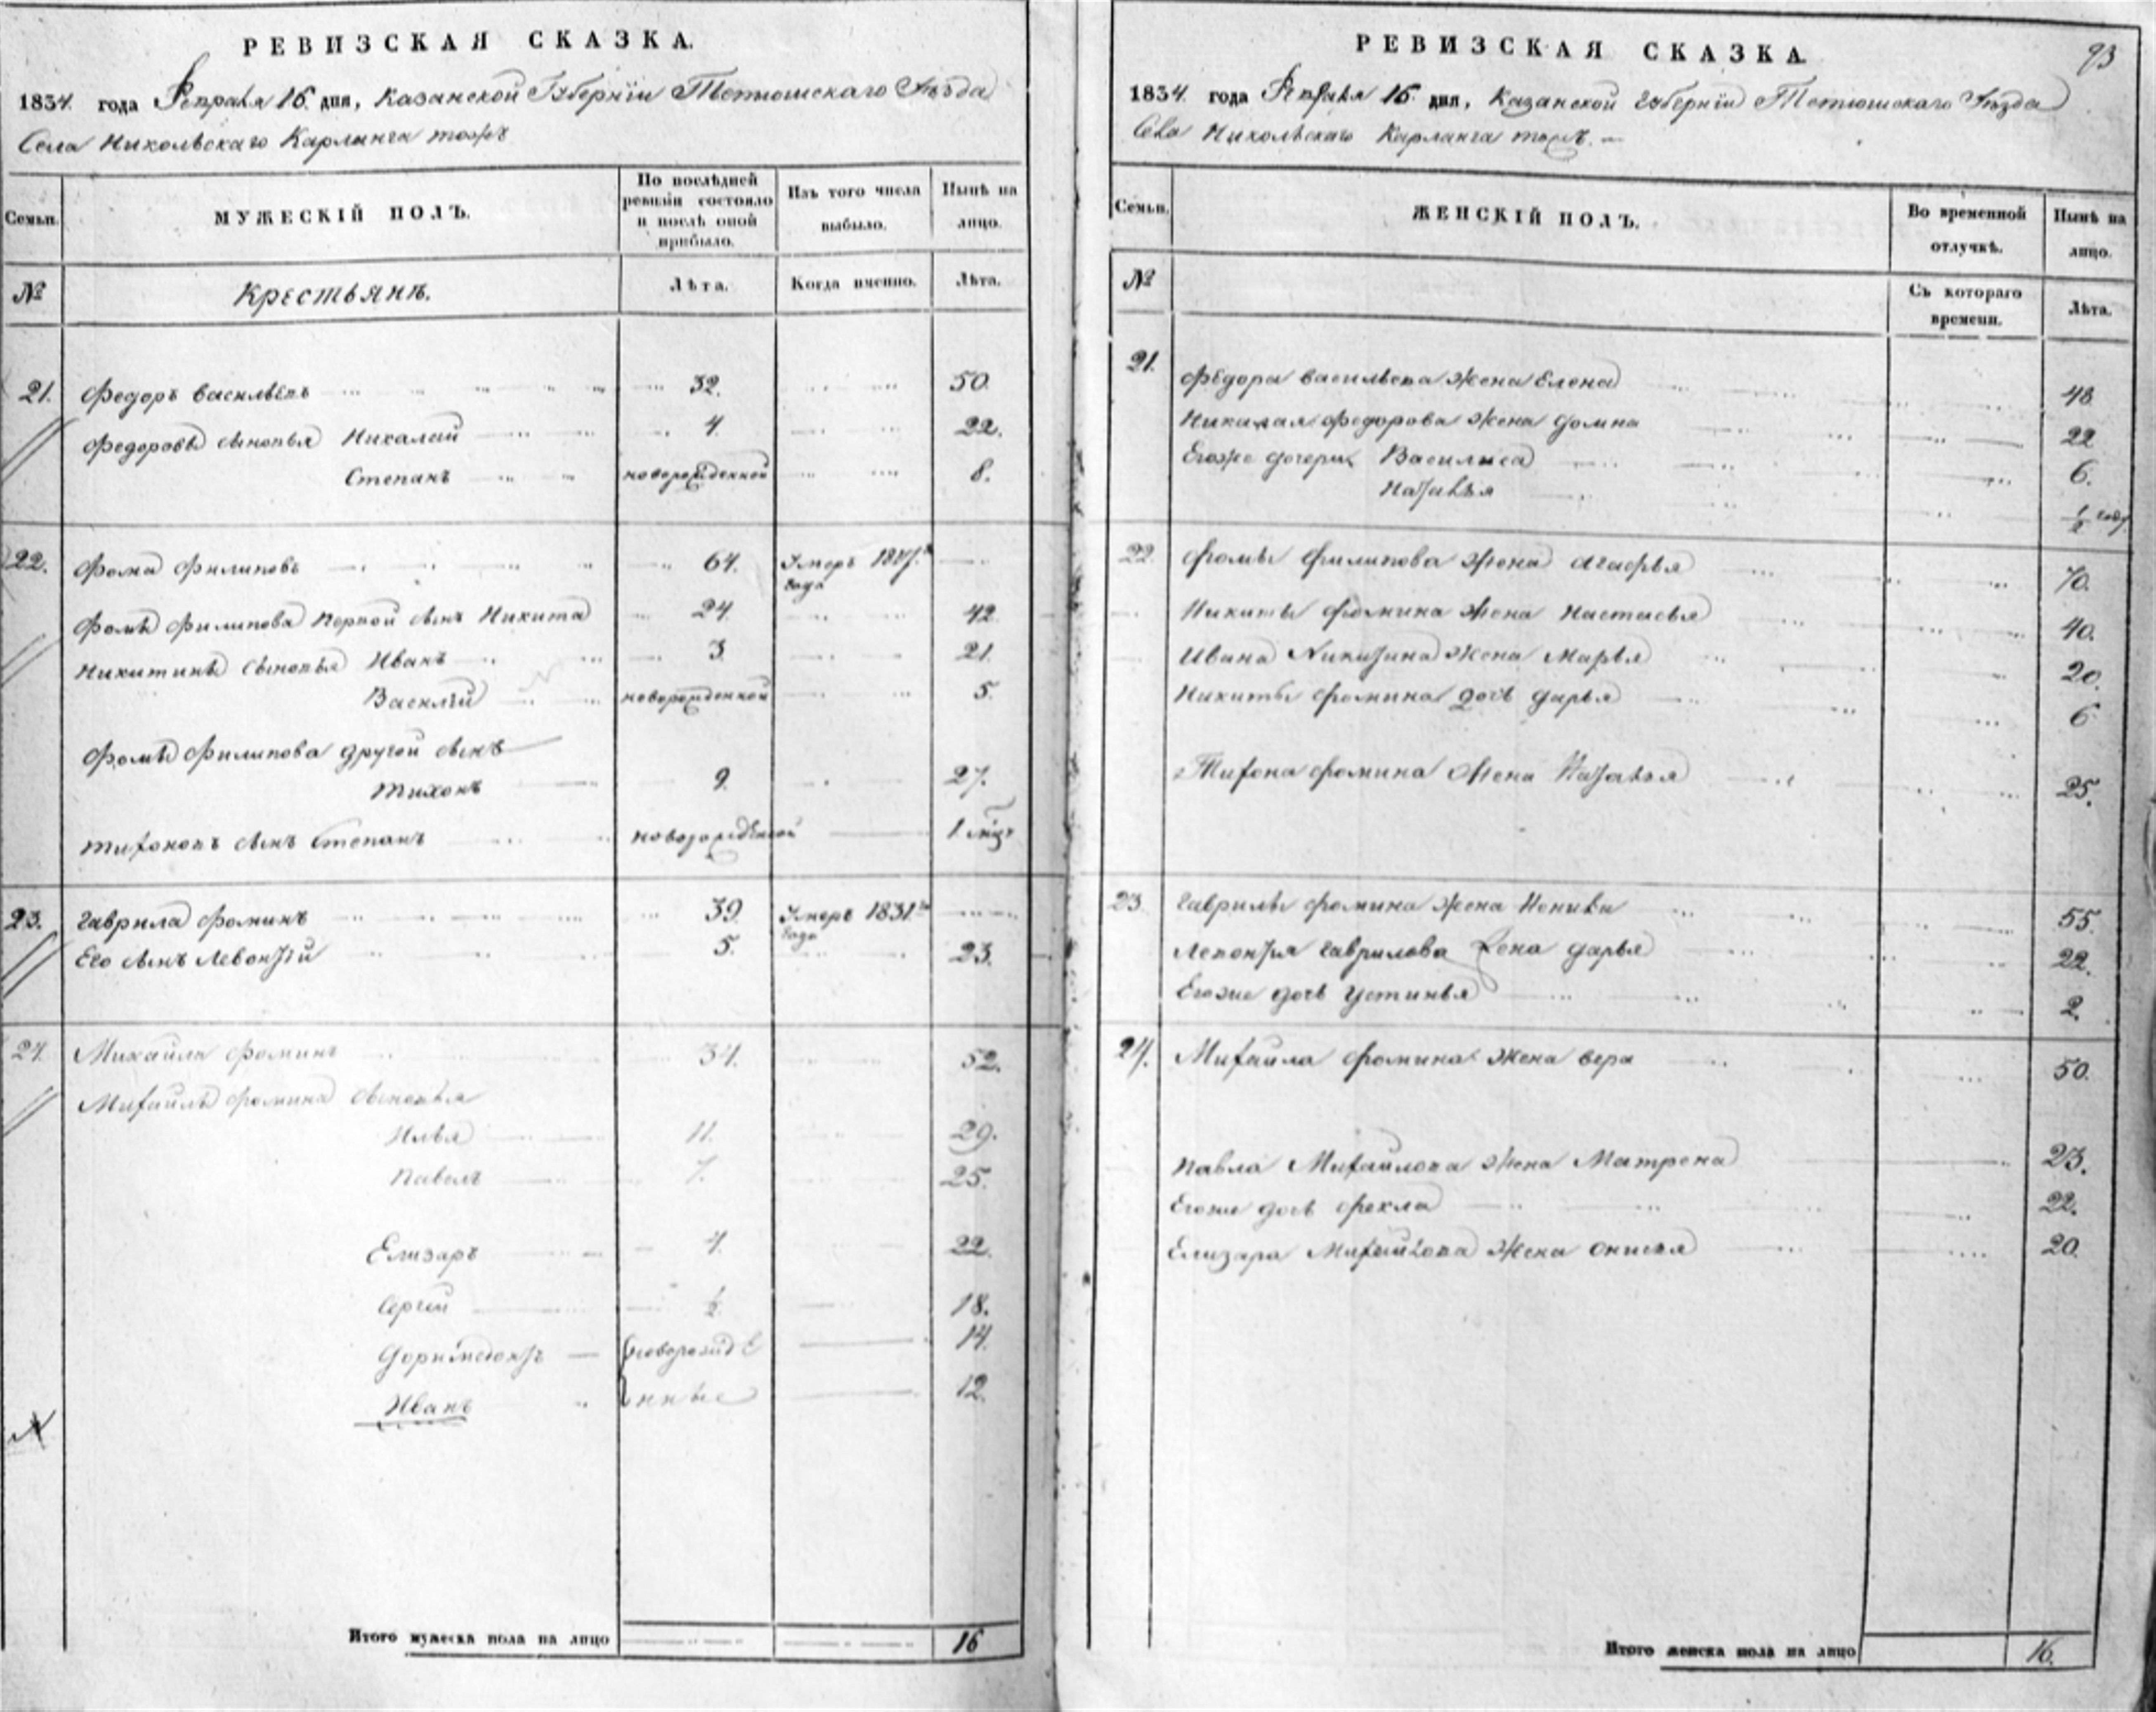 РЕВИЗСКАЯ СКАЗКА.
1834. года Февраля 16. дня, Казанской Губернїи Тетюшскаго Уѣзда
Села Никольскаго Карланга тожъ
Семьи.
МУЖЕСКІЙ ПОЛЪ.
По послѣдней ревизіи состояло и послѣ оной прибыло.
Изъ того числа выбыло.
Нынѣ на лицо.
№
Крестьянѣ.
Лѣта.
Когда именно.
Лѣта.
21. Федоръ Васильевъ 32. 50.
Федоровы сыновья Николай 4. 22.
Степанъ новорожденной 8.
22. Фома Филиповъ 64. Умеръ года
Фомы Филипова первой сынъ Никита 24. 42.
Никитины сыновья Иванъ 3. 21.
Василій новорожденной 5.
Фомы Филипова другой сынъ
Тихонъ 9. 27.
Тихоновъ сынъ Степанъ новорожденной 1 мѣц
23. Гаврила Фоминъ 39. Умеръ 1831го года
Его сынъ Левонтій 5. 23.
24. Михайла Фоминъ 34. 52.
Михайлы Фомина сыновья
Илья 11. 29.
Павелъ 7. 25.
Елизаръ 4. 22.
Сергій ½ 18.
Доримедонтъ новорожде 14.
Иванъ нные 12.
Итого мужеска пола на лицо 16
РЕВИЗСКАЯ СКАЗКА.
93
1834. года Февраля 16. дня, Казанской Губернїи Тетюшскаго Уѣзда
Села Никольскаго Карланга тожъ.
Семьи.
ЖЕНСКІЙ ПОЛЪ.
Во временной отлучкѣ.
Нынѣ на лицо.
№
Съ котораго времени.
Лѣта.
21. Федора Васильева жена Елена 48.
Николая Федорова жена Домна 22
Егоже дочери Василиса 6.
Наталья ½ году
22. Фомы Филипова жена Агафья 70.
Никиты Фомина жена Настасья 40.
Ивана Никитина жена Марья 20.
Никиты Фомина дочь Дарья 6
Тихона Фомина жена Наталья 25.
23. Гаврилы Фомина жена 55.
Левонтья Гаврилова жена Дарья 22.
Егоже дочь Устинья 2.
24. Михайла Фомина жена Вера 50.
Павла Михайлова жена Матрена 23.
Егоже дочь Фекла 22.
Елизара Михайлова жена Онисья 20.
Итого женска пола на лицо 16.